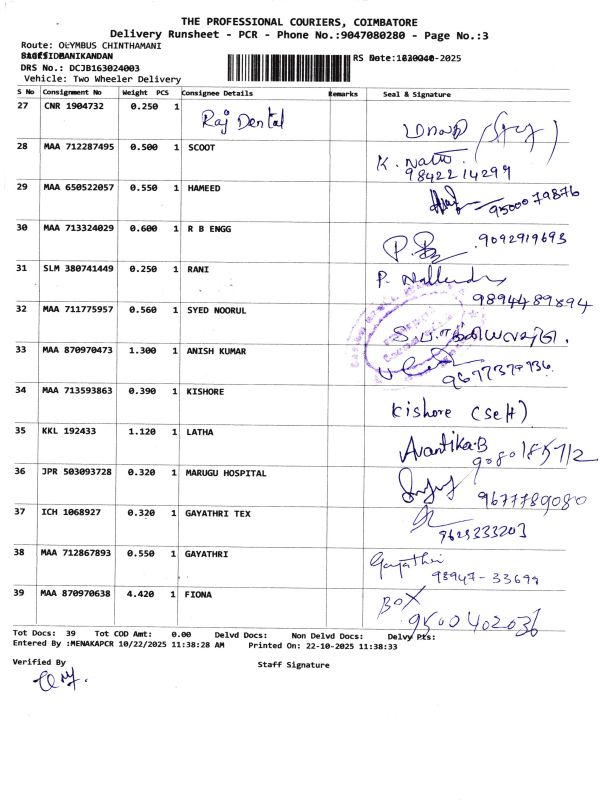 THE PROFESSIONAL COURIERS, COIMBATORE
Delivery Runsheet - PCR - Phone No.:9047080280 - Page No.:3
Route: OLYMBUS CHINTHAMANI
DRS No.: DCJB163024003
Vehicle: Two Wheeler Delivery
S No Consignment No Weight PCS Consignee Details Remarks Seal & Signature
27 CNR 1904732 0.250 1 Raj Dental
28 MAA 712287495 0.500 1 SCOOT
9842214299
29 MAA 650522057 0.550 1 HAMEED
9500079876
30 MAA 713324029 0.600 1 R B ENGG
9092919693
31 SLM 380741449 0.250 1 RANI
9894489894
32 MAA 711775957 0.560 1 SYED NOORUL
33 MAA 870970473 1.300 1 ANISH KUMAR
34 MAA 713593863 0.390 1 KISHORE
Kishore (Self)
35 KKL 192433 1.120 1 LATHA
Avantika.B
9080185712
36 JPR 503093728 0.320 1 MARUGU HOSPITAL
9677789080
37 ICH 1068927 0.320 1 GAYATHRI TEX
38 MAA 712867893 0.550 1 GAYATHRI
Gayathri
39 MAA 870970638 4.420 1 FIONA
BOX
9500402036
Tot Docs: 39 Tot COD Amt: 0.00 Delvd Docs: Non Delvd Docs: Delvy Pts:
Entered By :MENAKAPCR 10/22/2025 11:38:28 AM Printed On: 22-10-2025 11:38:33
Verified By Staff Signature